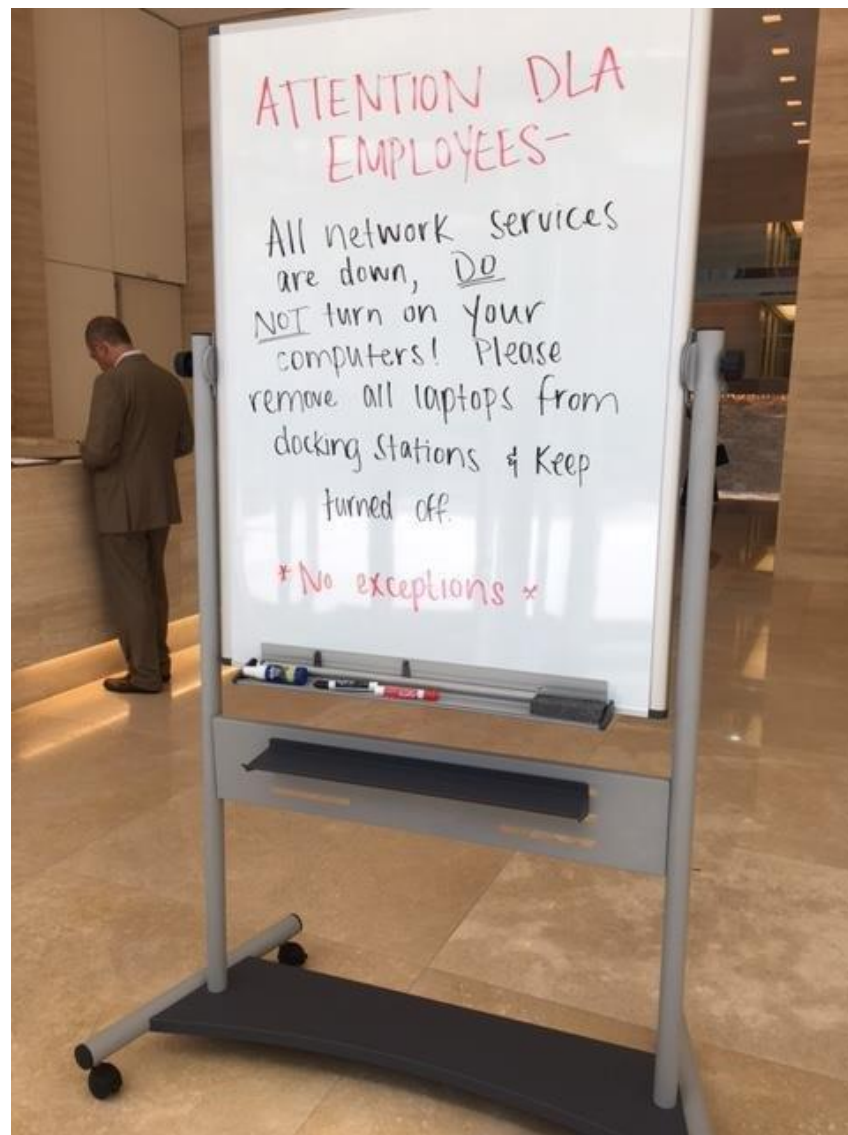 ATTENTION DLA
EMPLOYEES-
All network services
are down, DO
NOT turn on your
computers! Please
remove all laptops from
docking stations & Keep
turned off.
*No exceptions *